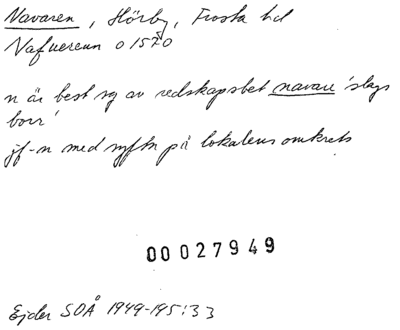 Navaren, Hörby, Frosta hd
Nafueren o 1570
n är best sg av redskapsbet navare 'slags
borr'
jf-n med syftn på lokalens omkrets
00027949
Ejder SOÅ 1949-195:33